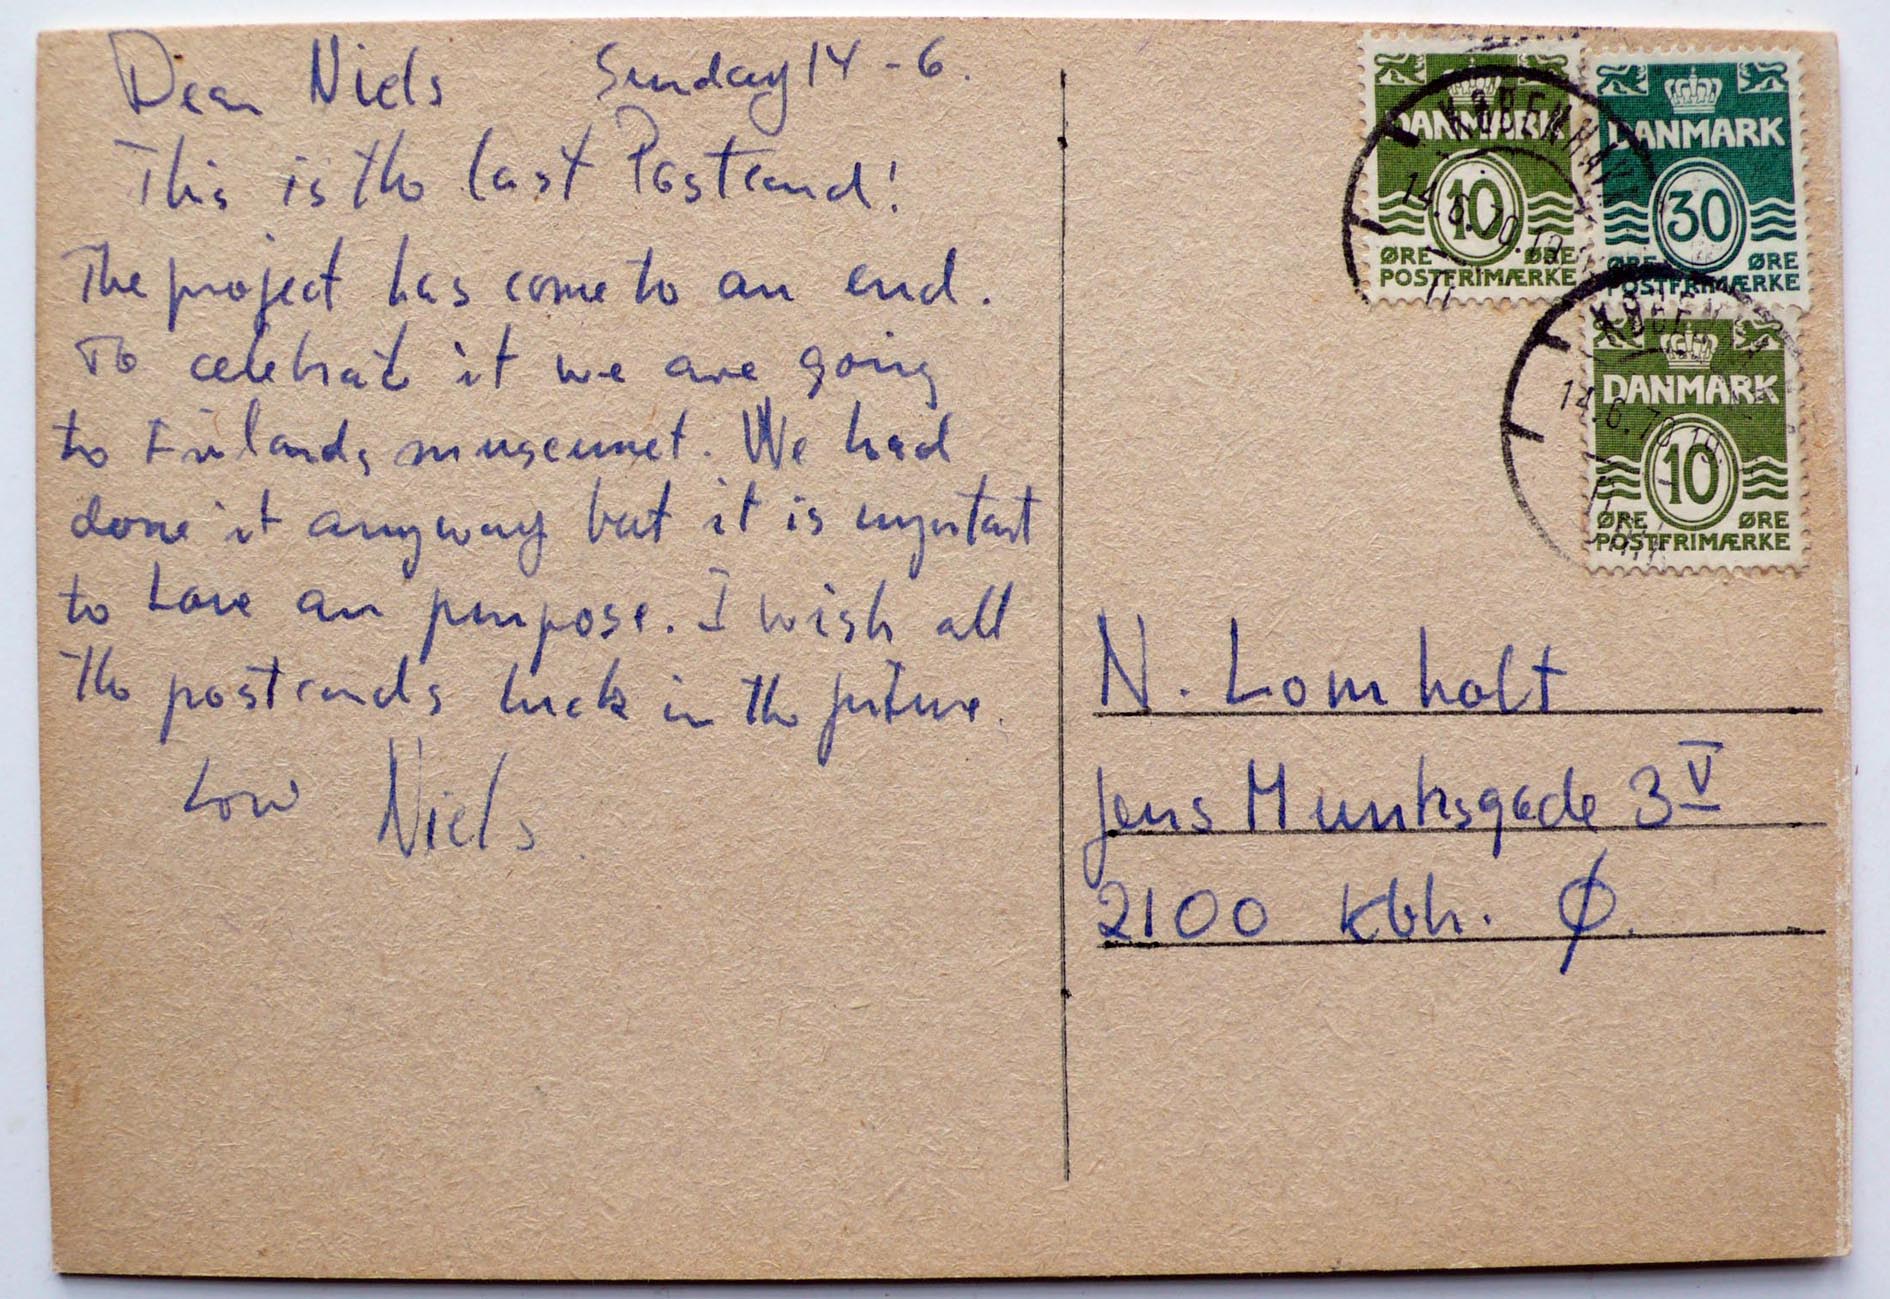 Dear Niels Sunday 14-6.
This is the last Postcard!
The project has come to an end.
To celebrate it we are going
to Frilands museumet. We had
done it anyway but it is important
to have an purpose. I wish all
the postcards luck in the future.
Love Niels.
DANMARK
10
ØRE ØRE
POSTFRIMÆRKE
DANMARK
30
ØRE ØRE
POSTFRIMÆRKE
KØBENHAVN
14.6.70.19
DANMARK
10
ØRE ØRE
POSTFRIMÆRKE
KØBENHAVN
14.6.70.19
N. Lomholt
Jens Munksgade 3 V
2100 Kbh. Ø.